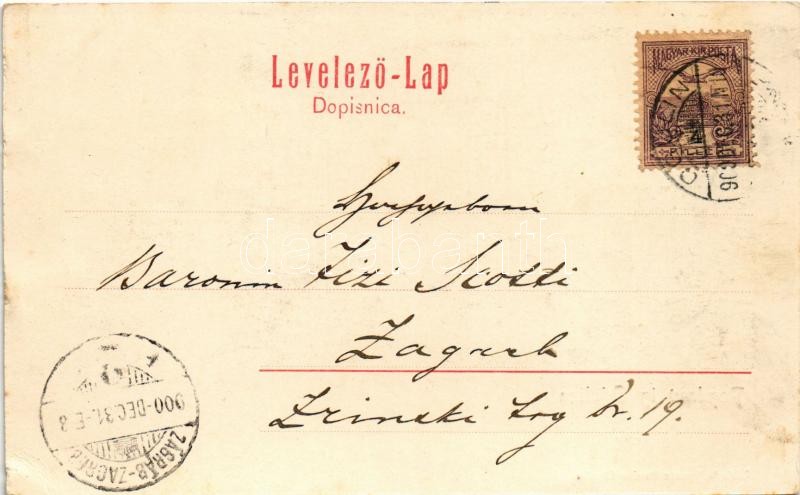 Levelező-Lap
Dopisnica.
MAGYAR·KIR·POSTA
FILLÉR
Hochgeboren
Baronin Fizi Scotti
Zagreb
Zrinski trg br. 19.
900-DEC. 31.-E 8
ZÁGRÁB-ZAGREB
darabanth